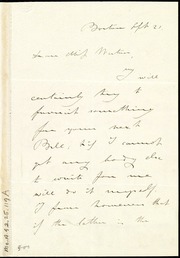 Boston Sept 21.
Dear Miss Weston,
I will
certainly try to
furnish something
for your next
Bell, & if I cannot
get any body else
to write for me
will do it myself.
I fear however that
if the letter is the